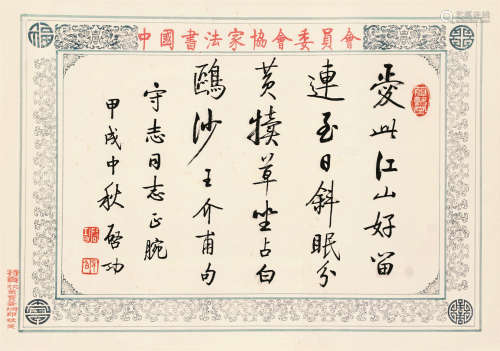 中國書法家協會委員會
愛此江山好留
連至日斜眠分
黃犢草坐占白
鷗沙王介甫句
守志同志正腕
甲戌中秋啓功